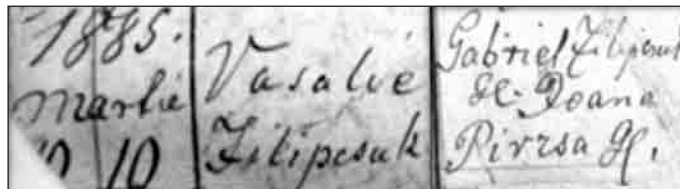 1885.
Martie
10 10
Vasalie
Filipcsuk
Gabriel Filipcsuk
gc. Ioana
Pirrsa gc.